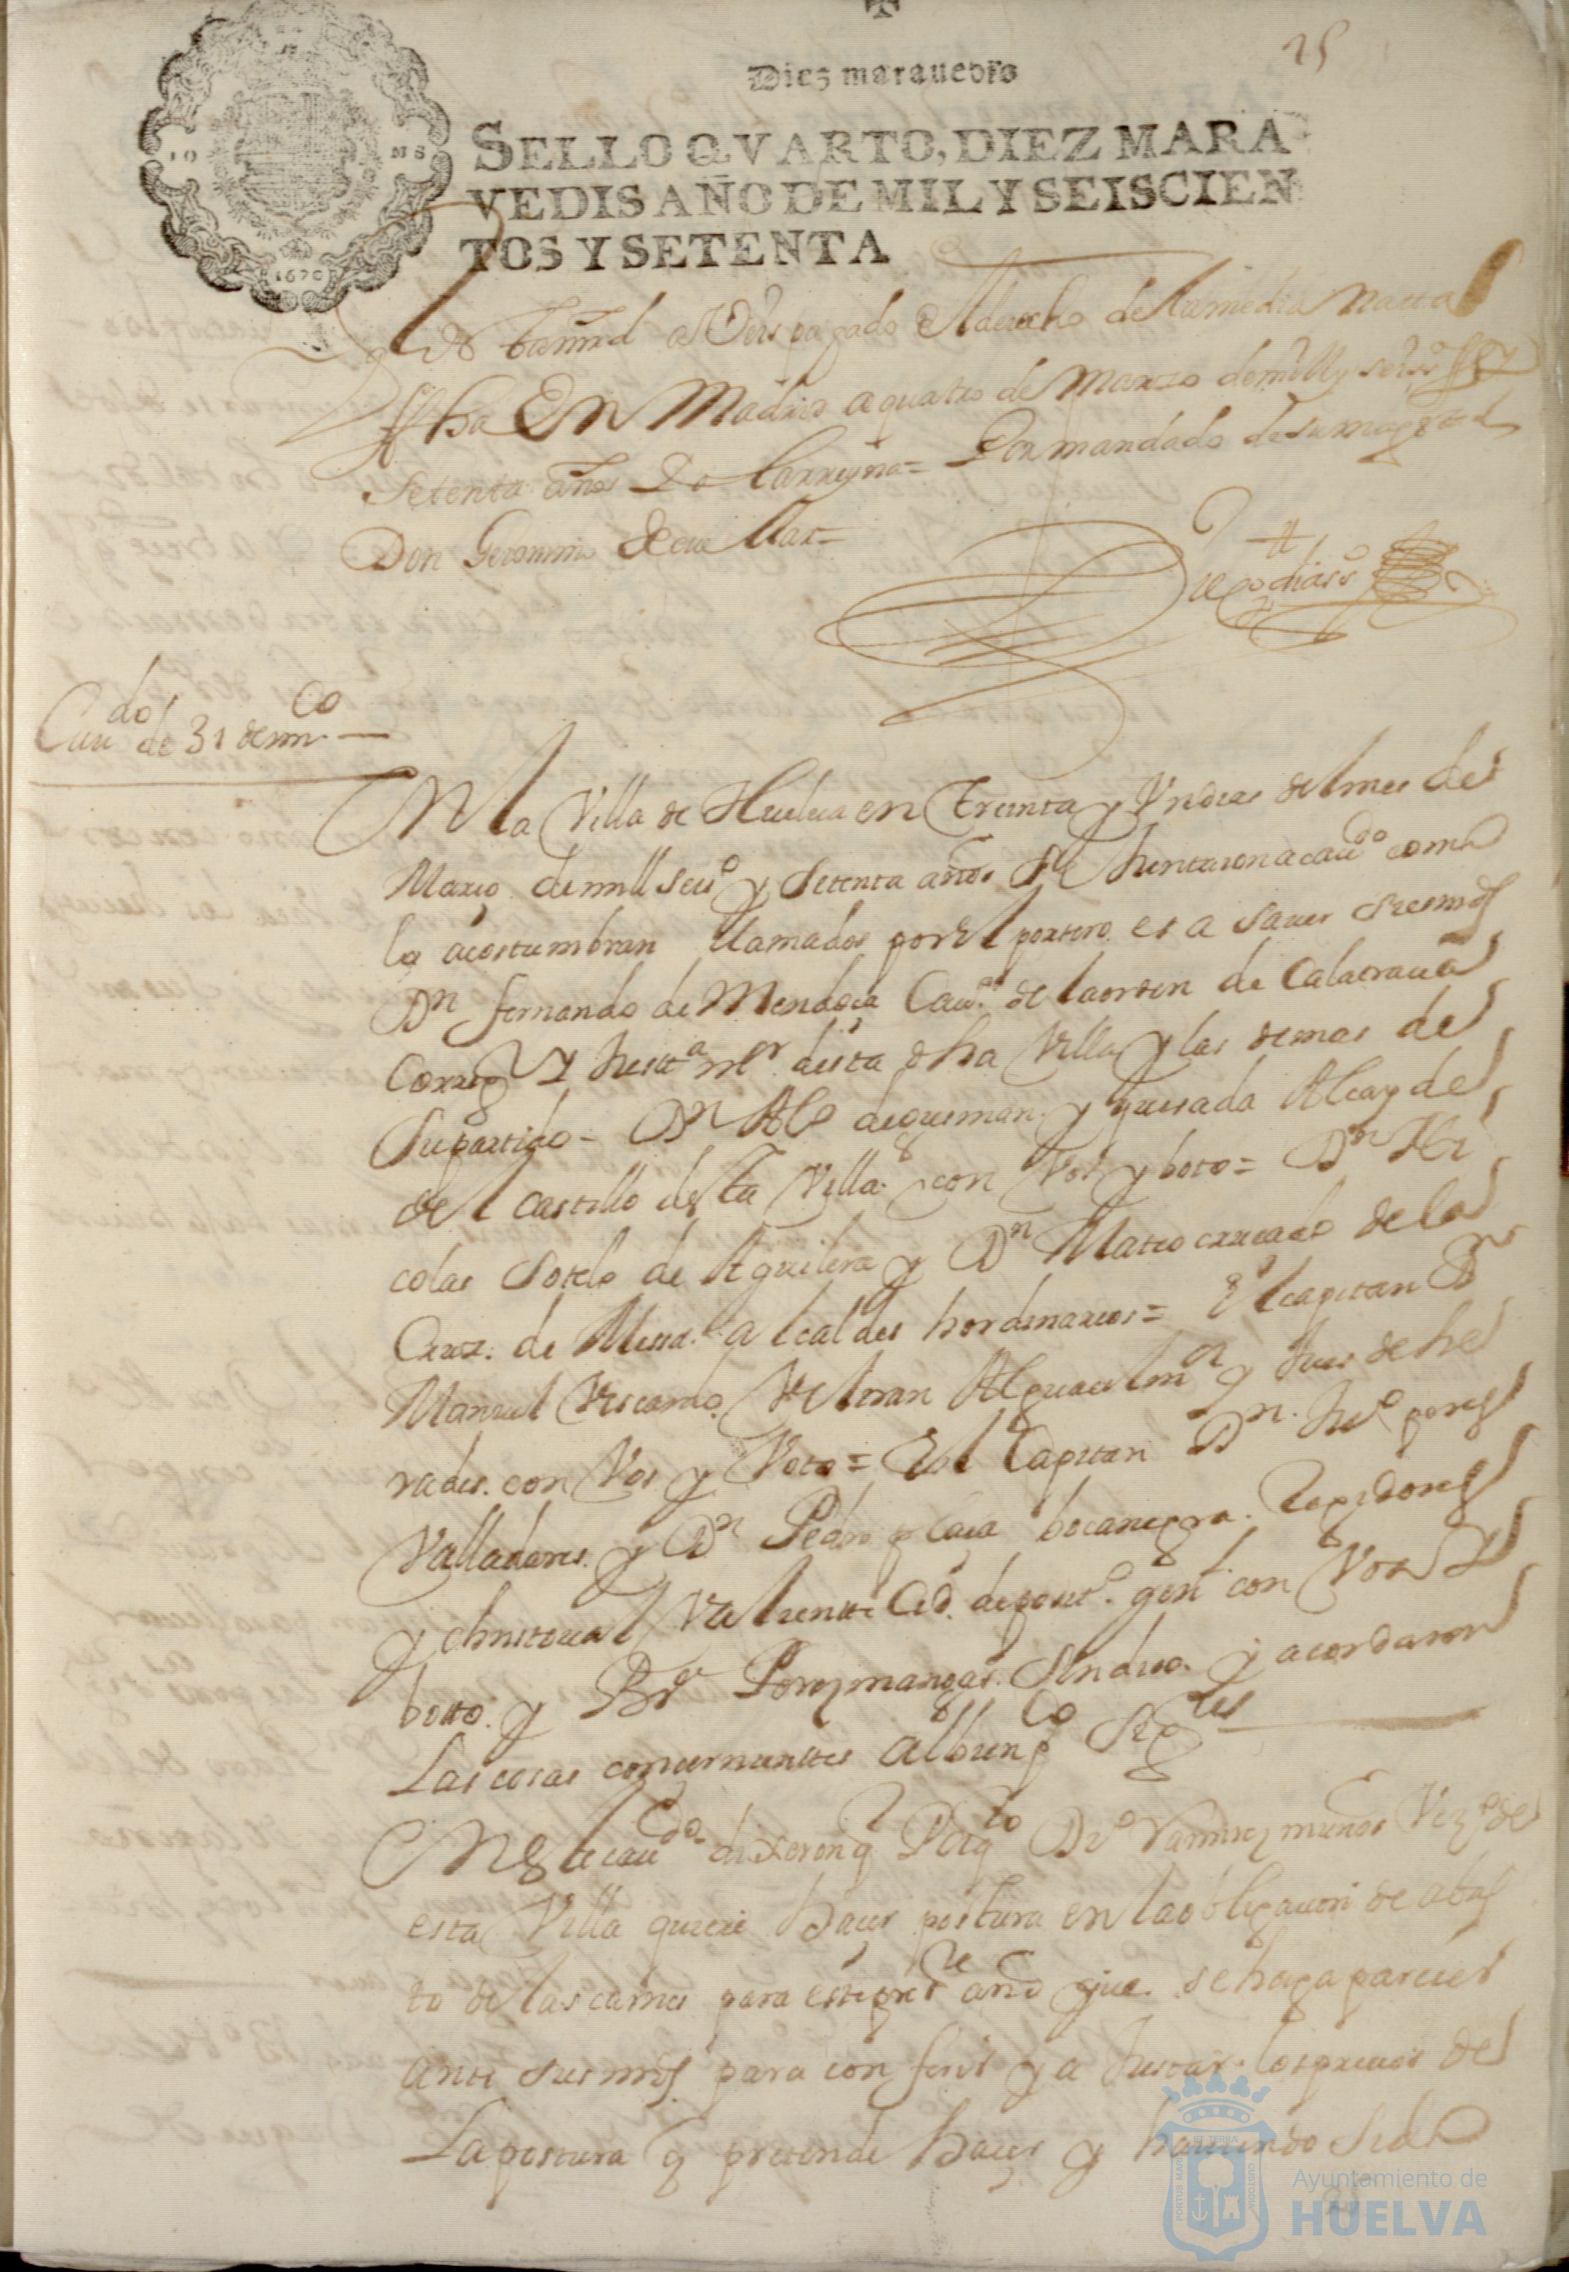 25
Diez marauedis
SELLO QVARTO, DIEZ MARA
VEDIS AÑO DE MIL Y SEISCIEN
TOS Y SETENTA
1670
pagado el derecho de la media nata
fha En Madrid a quatro de Marzo de mill y seisº
setenta años Por mandado de su magd
Don Geronimo de cuellar =
Caudo de 31 de mco
EN la Villa de Huelua en treinta y Un dias del mes de
Março de mill seisº y setenta años Se Juntaron a caudo como
lo acostumbran llamados por el portero es a sauer sus mds
Dn fernando de Mendoça Cauº de la orden de Calatraua
Correg Y Justa mor desta dha Villa y las demas de
Su partido = Dn Alº de gusman y quesada Alcayde
del castillo desta Villa con Vos y boto = Dn Ni
colas Sotelo de Aguilera y Dn Mateo de la
Cruz de Messa alcaldes hordinarios = El capitan Dn
Manuel Viscaino Veltran Alguacil mor y Jues de he
rades con Vos y Voto = El Capitan Dn Juº peres
Valladares y Dn Pedro plaça bocanegra Regidores
y christoual Valiente deposito gen con Vos Y
botto y Perez mangas Sindico y acordaron
Las cosas concernientes al bien pco Sigtes
EN este caudo dixeron q Ramires muños Vezº de
esta Villa quiere hacer postura en la obligacion de abas
to de las carnes para este preste año que se haga pareser
ante sus mds para conferir y a Justar los precios de
La postura q pretende hacer y hauiendo sido
Ayuntamiento de
HUELVA